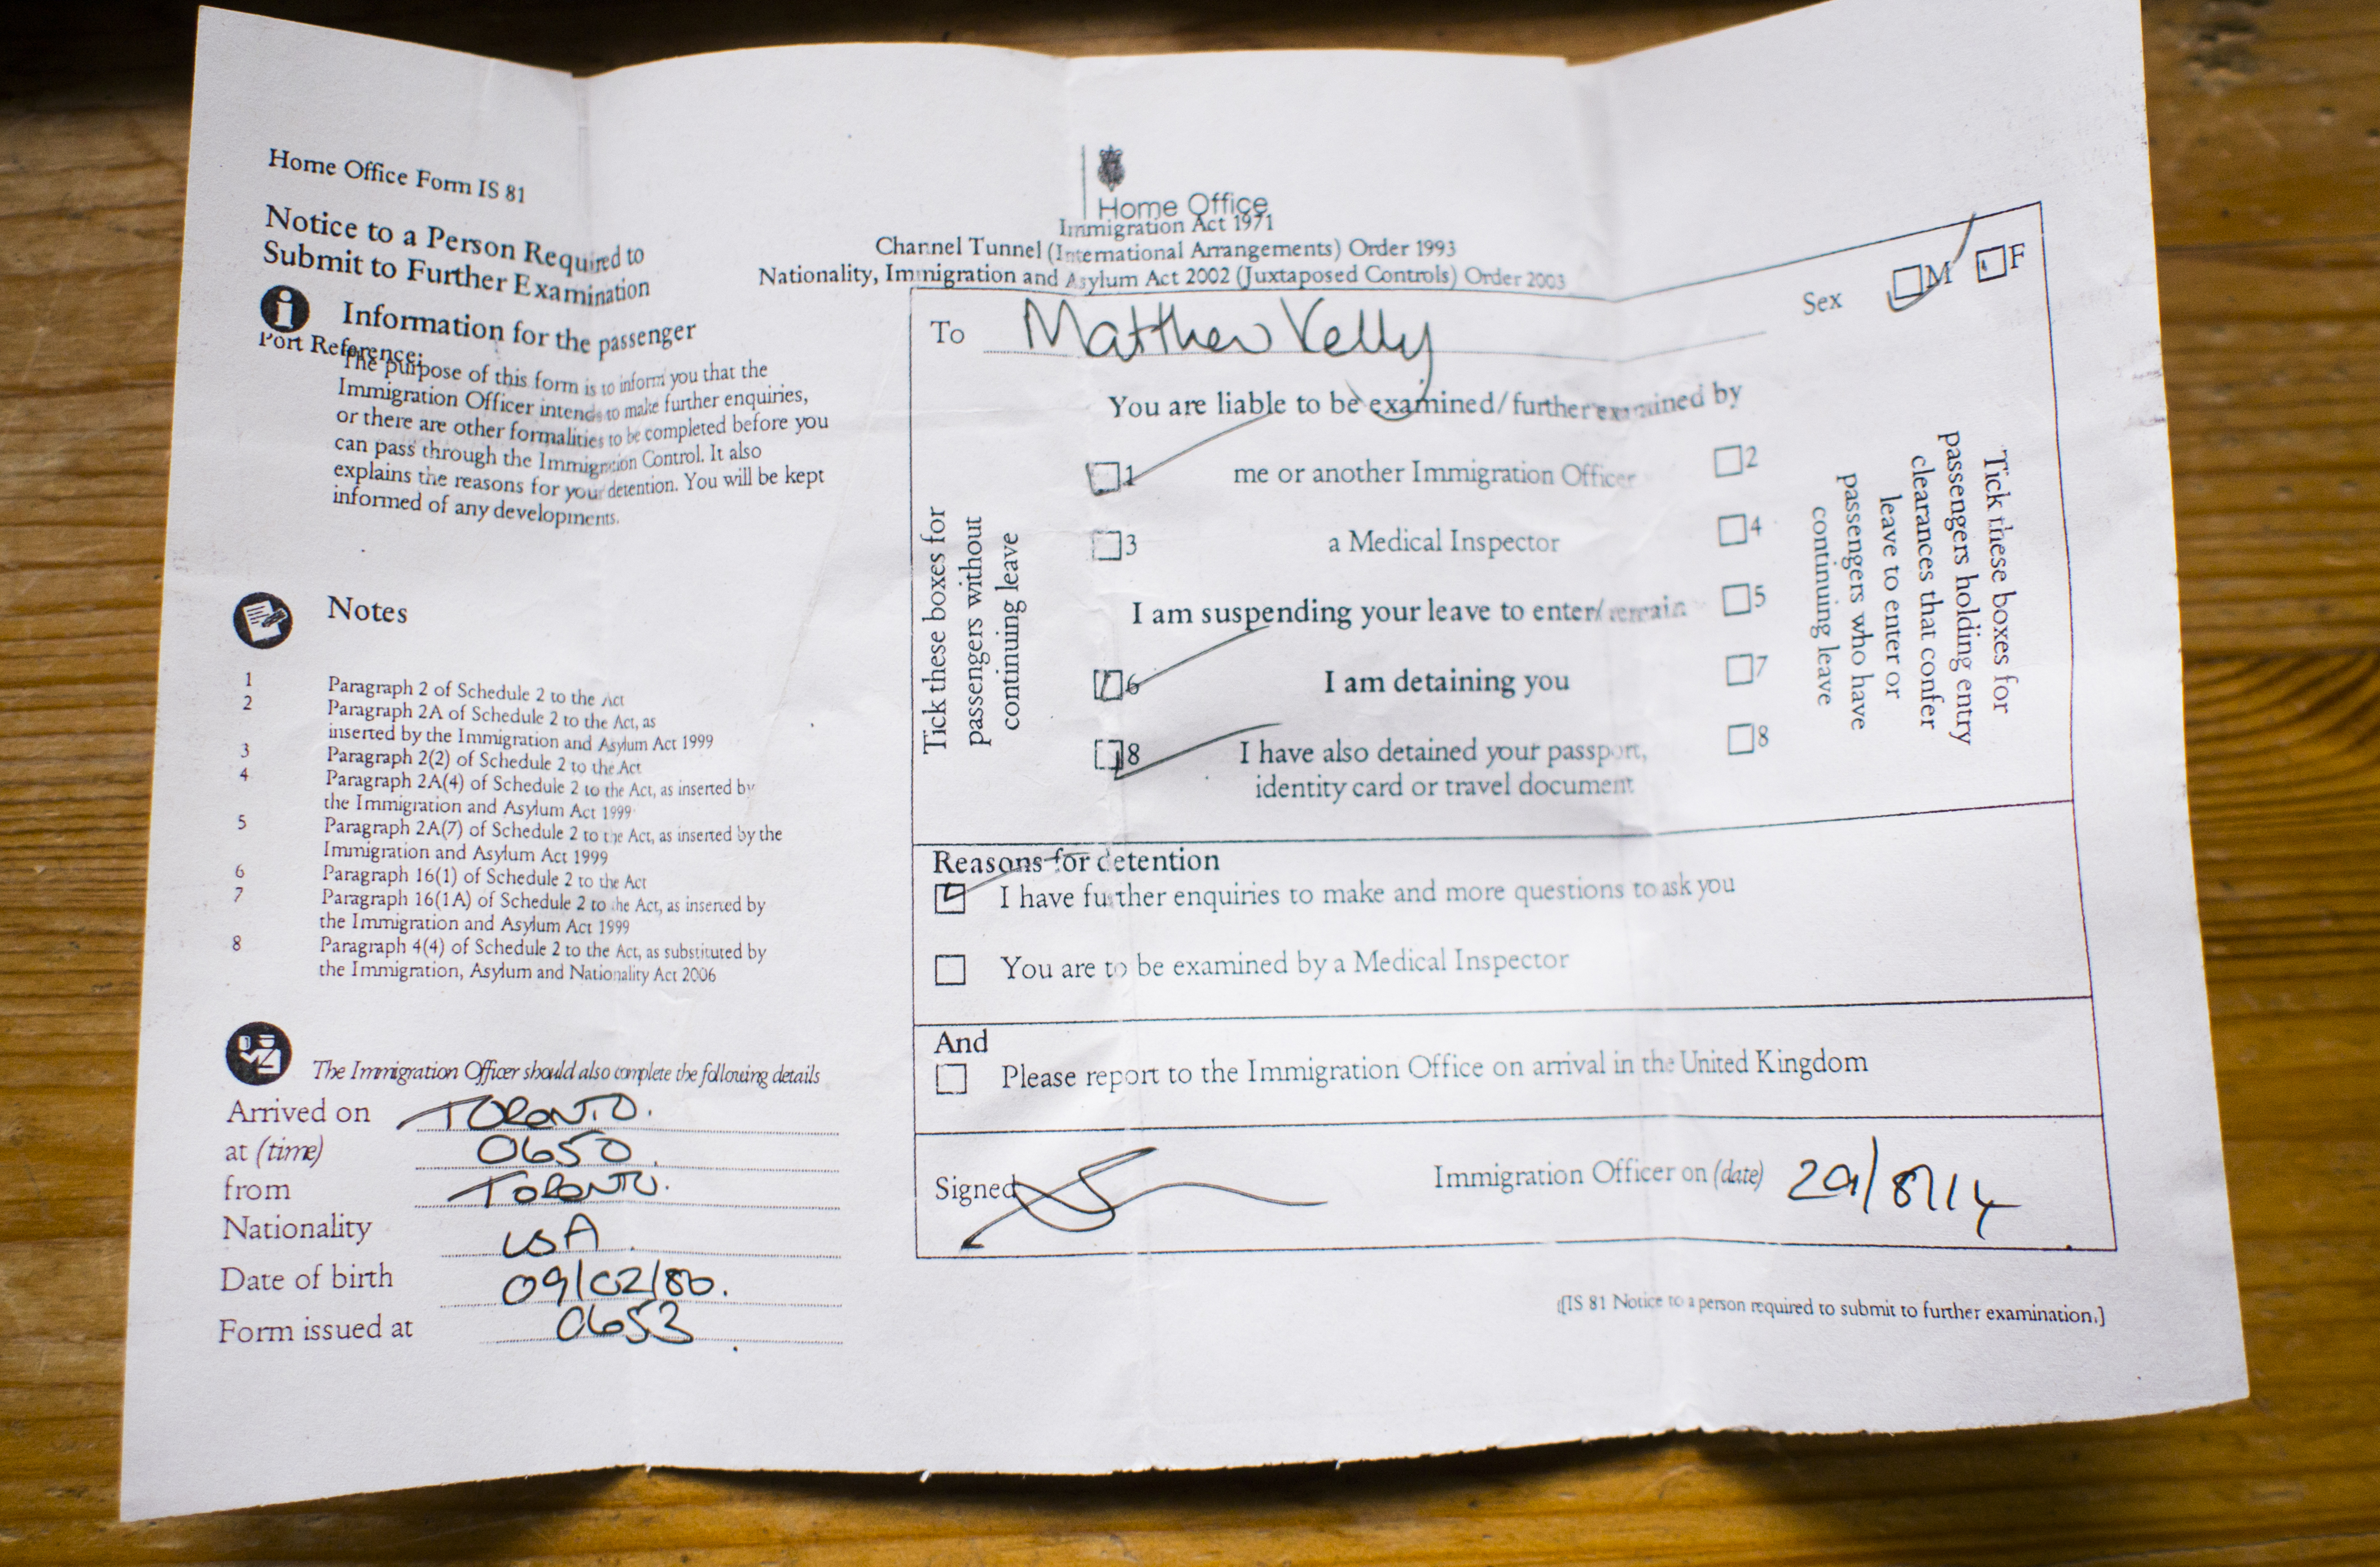 Home Office Form IS 81
Notice to a Person Required to
Submit to Further Examination
Information for the passenger
Port Reference:
The purpose of this form is to inform you that the
Immigration Officer intends to make further enquiries,
or there are other formalities to be completed before you
can pass through the Immigration Control. It also
explains the reasons for your detention. You will be kept
informed of any developments.
Notes
1 Paragraph 2 of Schedule 2 to the Act
2 Paragraph 2A of Schedule 2 to the Act, as
inserted by the Immigration and Asylum Act 1999
3 Paragraph 2(2) of Schedule 2 to the Act
4 Paragraph 2A(4) of Schedule 2 to the Act, as inserted by
the Immigration and Asylum Act 1999
5 Paragraph 2A(7) of Schedule 2 to the Act, as inserted by the
Immigration and Asylum Act 1999
6 Paragraph 16(1) of Schedule 2 to the Act
7 Paragraph 16(1A) of Schedule 2 to the Act, as inserted by
the Immigration and Asylum Act 1999
8 Paragraph 4(4) of Schedule 2 to the Act, as substituted by
the Immigration, Asylum and Nationality Act 2006
The Immigration Officer should also complete the following details
Arrived on TORONTO.
at (time) 0650.
from TORONTO.
Nationality USA.
Date of birth 09/02/80.
Form issued at 0653
Home Office
Immigration Act 1971
Channel Tunnel (International Arrangements) Order 1993
Nationality, Immigration and Asylum Act 2002 (Juxtaposed Controls) Order 2003
Sex M F
To Matthew Kelly
You are liable to be examined/further examined by
1 me or another Immigration Officer 2
3 a Medical Inspector 4
I am suspending your leave to enter/remain 5
6 I am detaining you 7
8 I have also detained your passport, 8
identity card or travel document
Tick these boxes for
passengers without
continuing leave
Tick these boxes for
passengers holding entry
clearances that confer
leave to enter or
passengers who have
continuing leave
Reasons for detention
I have further enquiries to make and more questions to ask you
You are to be examined by a Medical Inspector
And
Please report to the Immigration Office on arrival in the United Kingdom
Signed Immigration Officer on (date) 29/8/14
[IS 81 Notice to a person required to submit to further examination.]